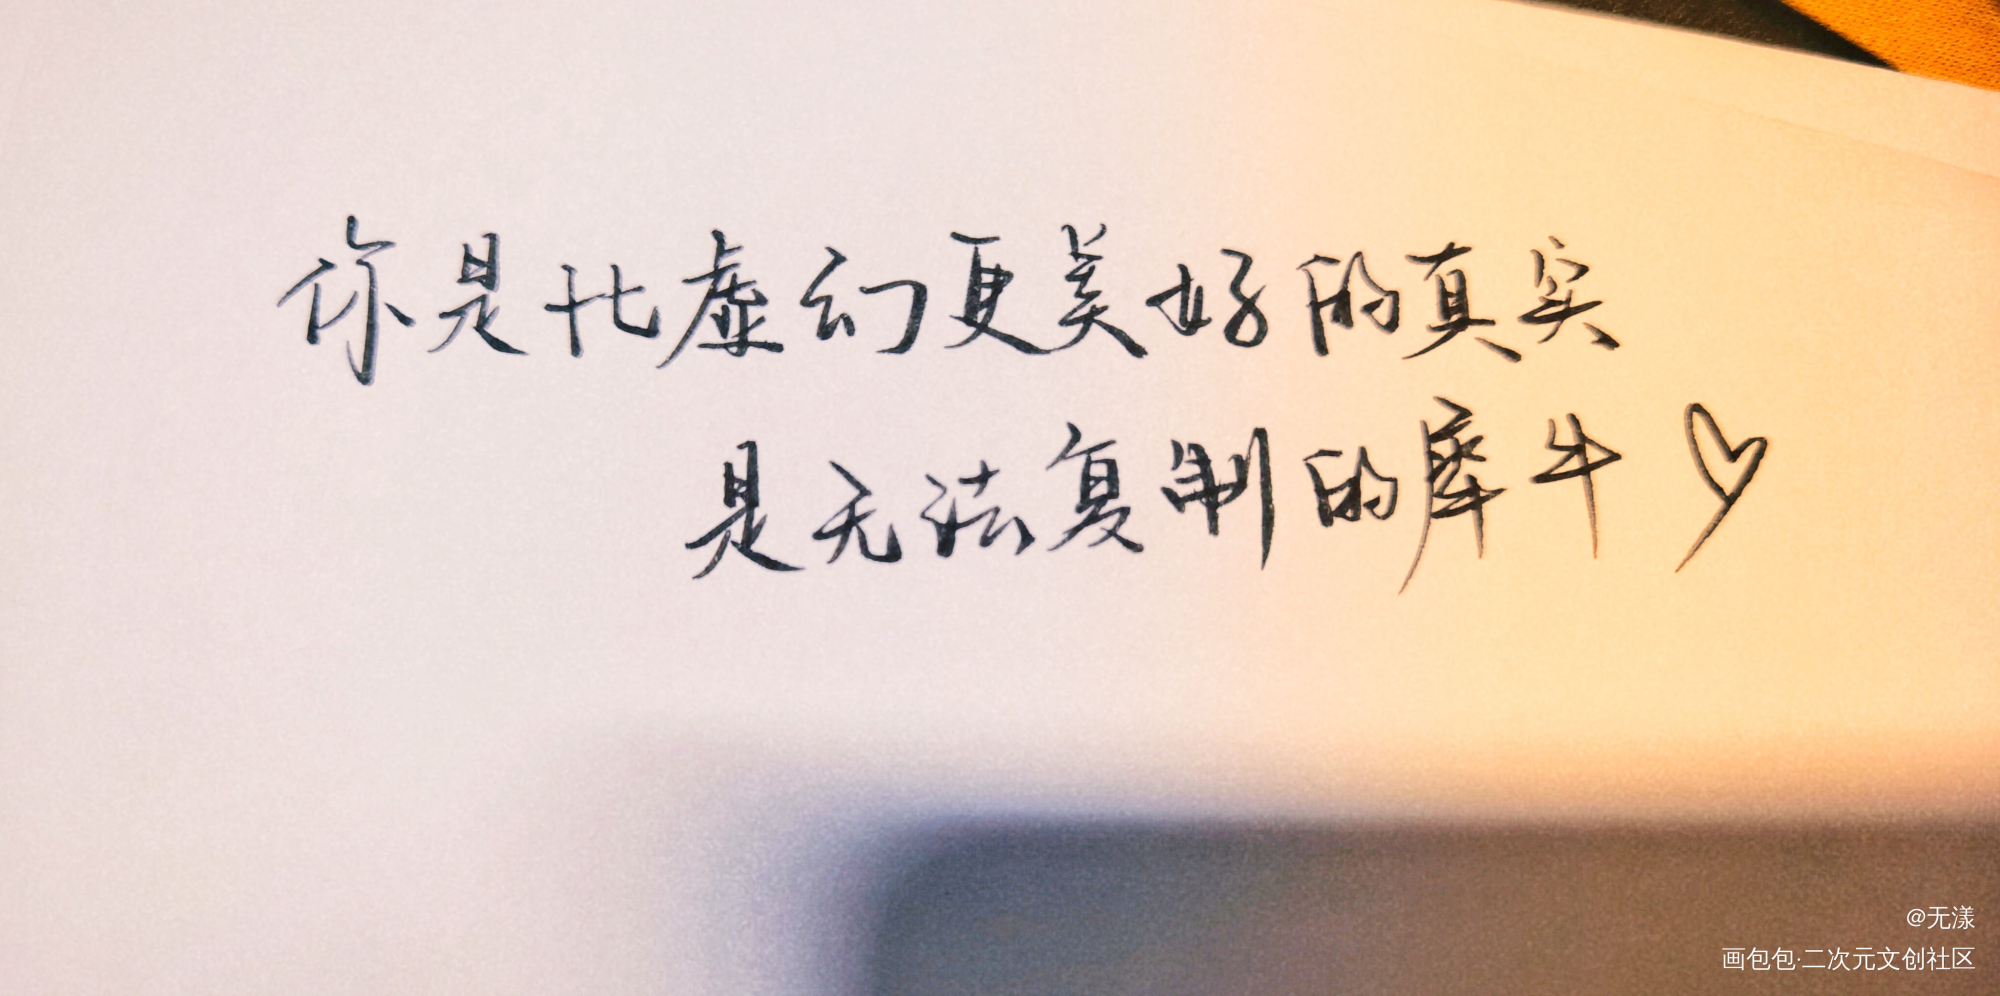 你是比虚幻更美好的真实
是无法复制的犀牛
@无漾
画包包·二次元文创社区